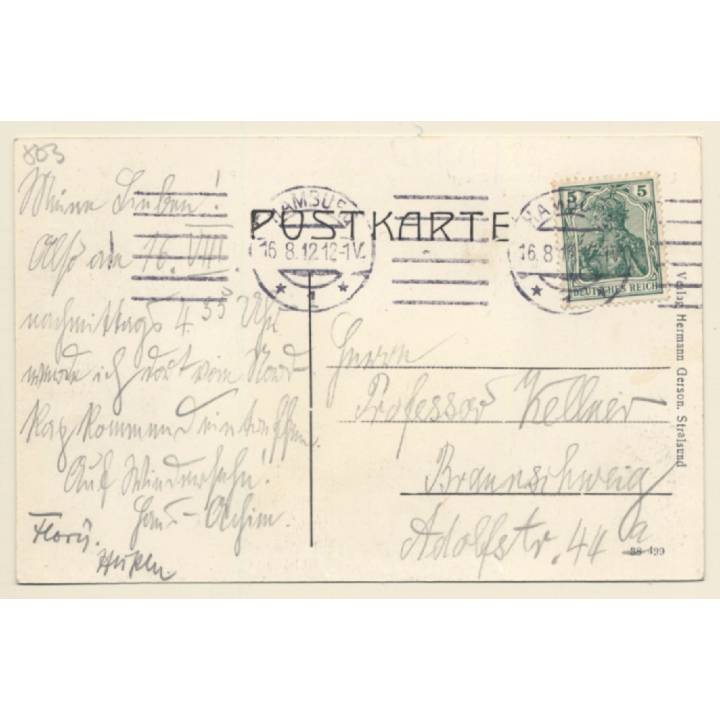 803
Meine Lieben!
Also am 16. VIII
nachmittags 4 55 Uhr
werde ich dort vom Nord-
kap kommend eintreffen.
Auf Wiedersehn!
Hans-Achim.
POSTKARTE
HAMBURG
16.8.12.12-1V.
* 1 *
HAMBU
16.8
5 5
DEUTSCHES REICH
Herrn
Professor Kellner
Braunschweig
Adolfstr. 44 a
Verlag Hermann Gerson, Stralsund
38-499